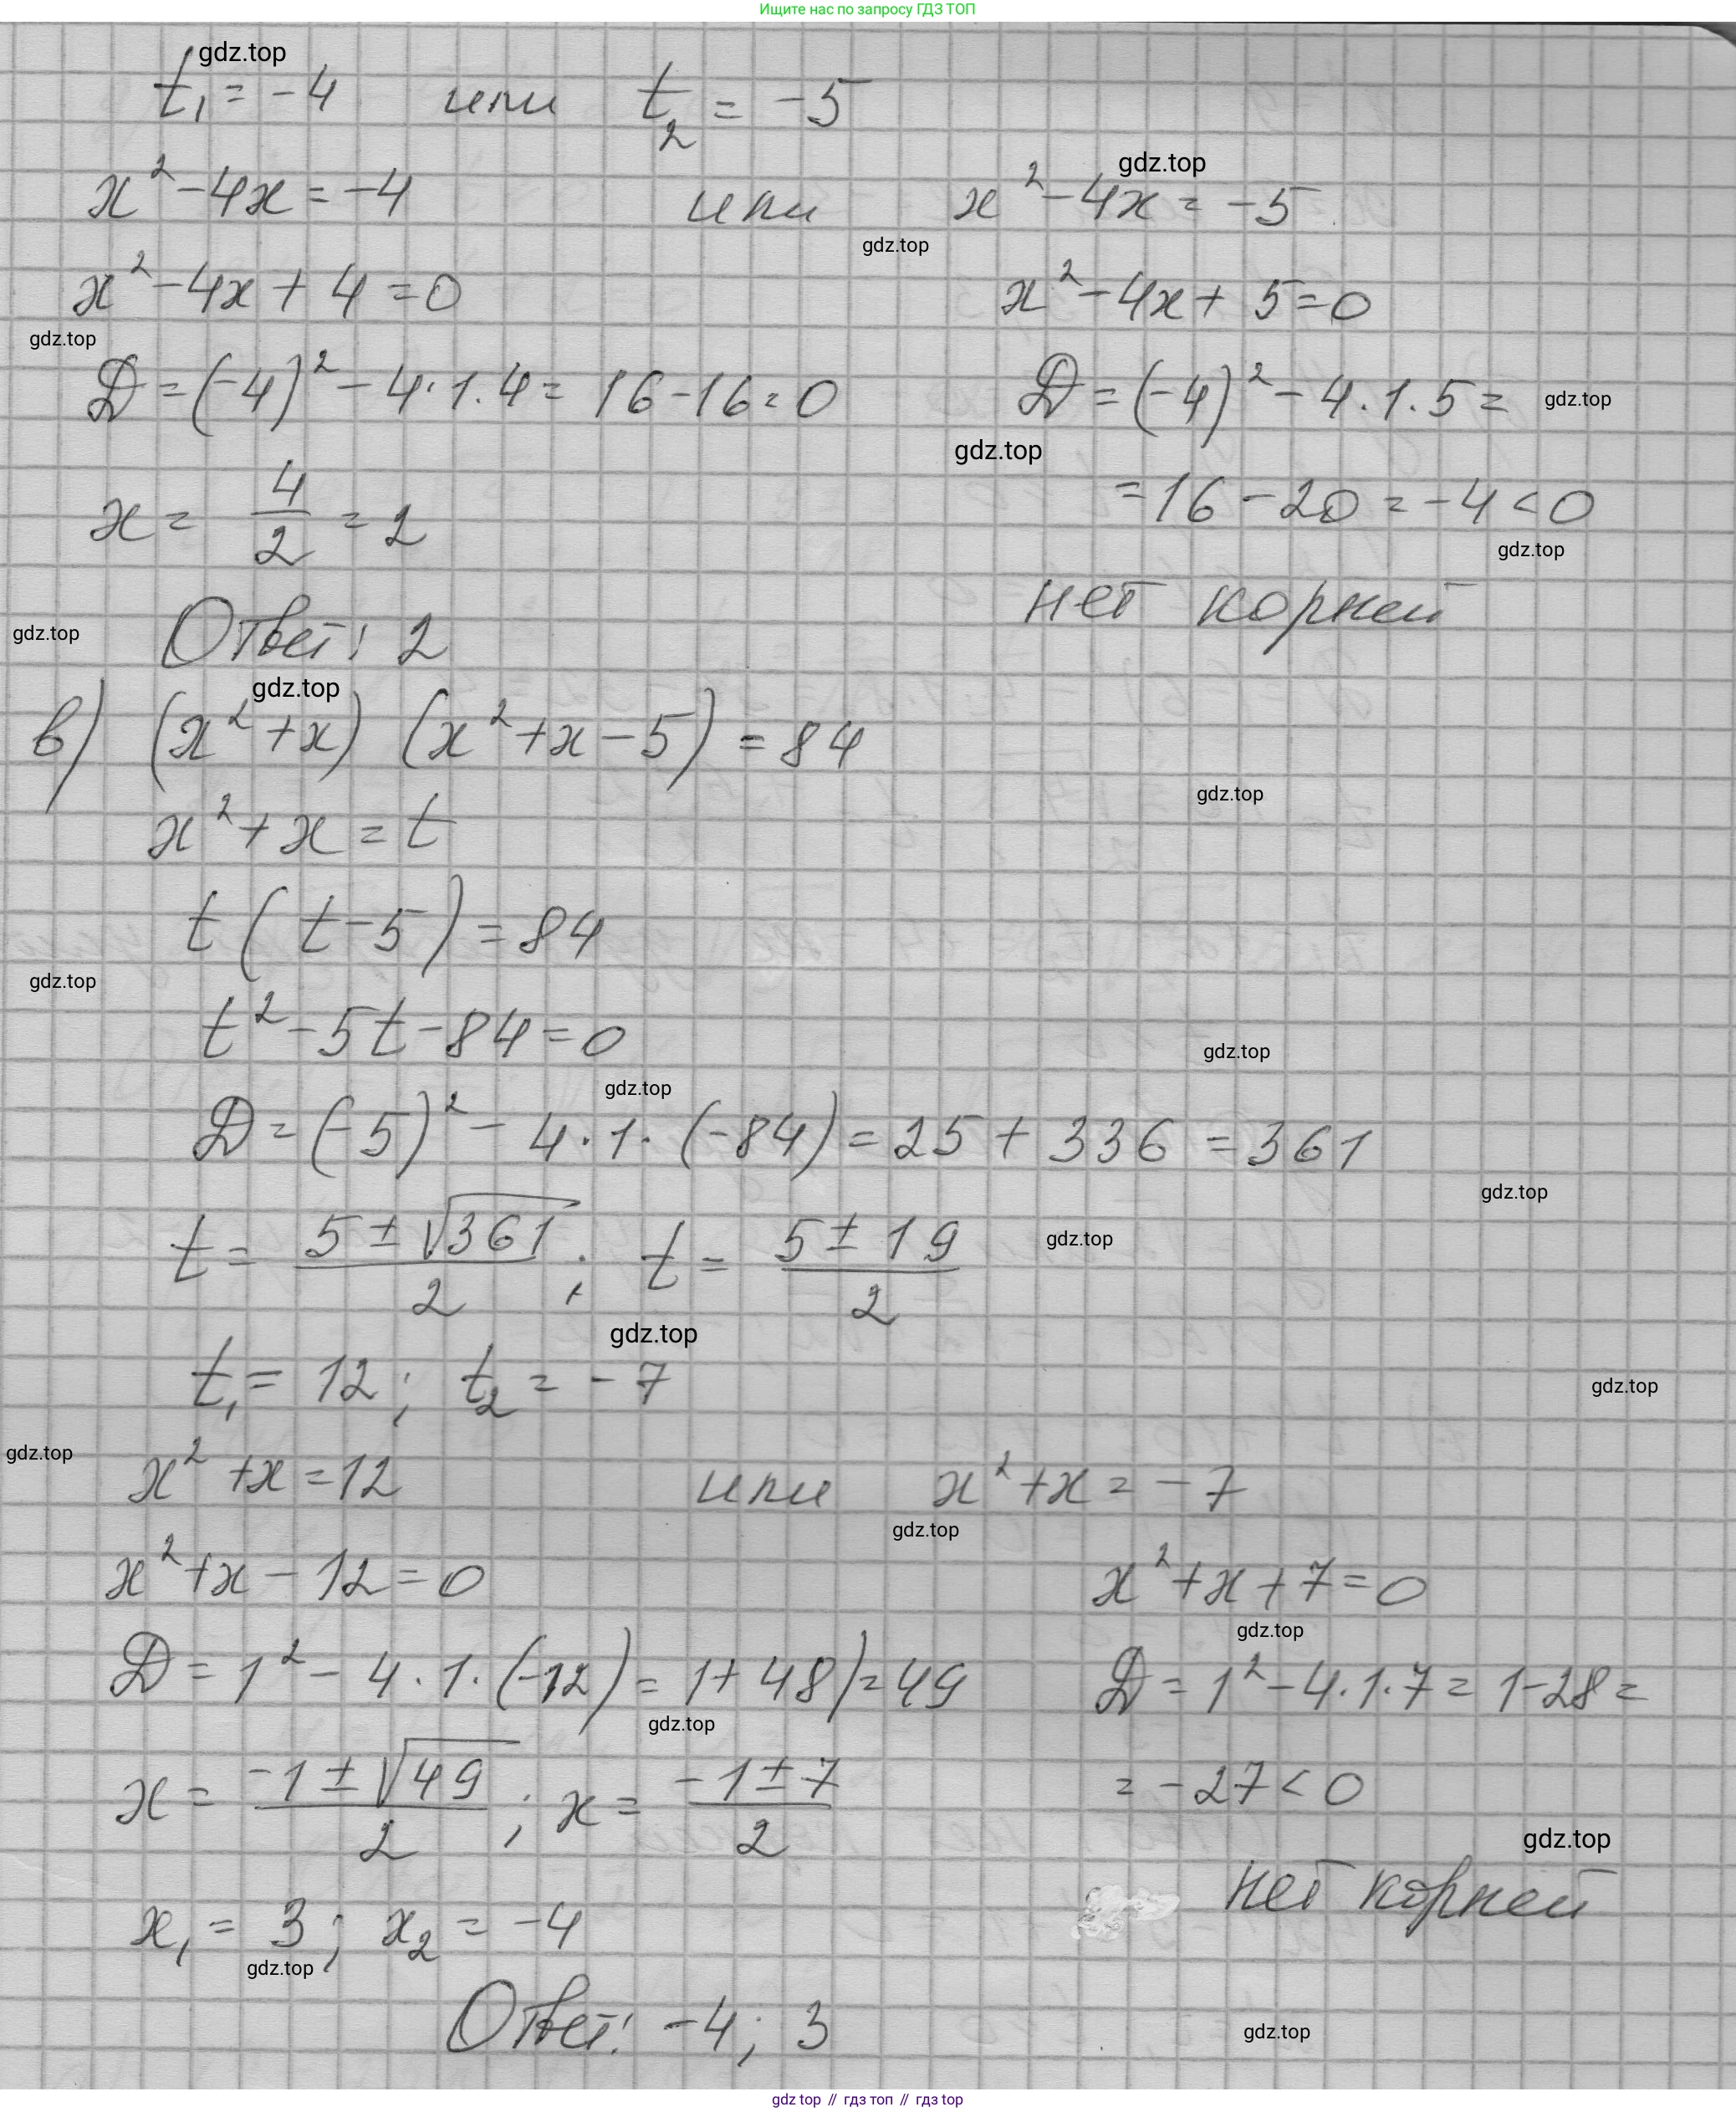 Ищите нас по запросу ГДЗ ТОП
gdz.top
t₁ = -4 или t₂ = -5
gdz.top
x² - 4x = -4 или x² - 4x = -5
gdz.top
x² - 4x + 4 = 0 x² - 4x + 5 = 0
gdz.top
D = (-4)² - 4·1·4 = 16 - 16 = 0 D = (-4)² - 4·1·5 =
gdz.top
gdz.top
x = 4/2 = 2 = 16 - 20 = -4 < 0
gdz.top
нет корней
gdz.top
Ответ: 2
gdz.top
в) (x² + x) (x² + x - 5) = 84
gdz.top
x² + x = t
t(t - 5) = 84
gdz.top
t² - 5t - 84 = 0
gdz.top
gdz.top
D = (-5)² - 4·1·(-84) = 25 + 336 = 361
gdz.top
t = (5 ± √361)/2; t = (5 ± 19)/2
gdz.top
gdz.top
t₁ = 12; t₂ = -7
gdz.top
gdz.top
x² + x = 12 или x² + x = -7
gdz.top
x² + x - 12 = 0 x² + x + 7 = 0
gdz.top
D = 1² - 4·1·(-12) = 1 + 48) = 49 D = 1² - 4·1·7 = 1 - 28 =
gdz.top
x = (-1 ± √49)/2; x = (-1 ± 7)/2 = -27 < 0
gdz.top
нет корней
x₁ = 3; x₂ = -4
gdz.top
Ответ: -4; 3
gdz.top
gdz top // гдз топ // gdz top